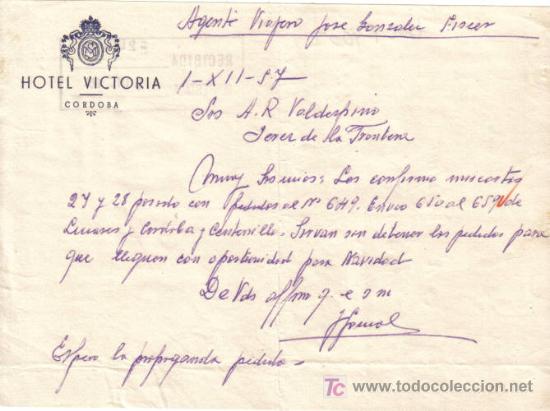 Agente Viajero Jose Gonzalez
HOTEL VICTORIA
CORDOBA
RECIBIDA
1-XII-57
Srs A. R. Valdespino
Jerez de la Frontera
Muy Sres mios: Les confirmo mis cartas
27 y 28 pasado con pedidos al Nº 649. Envio 650 al 659 de
Linares y Cordoba y . Sirvan sin detener los pedidos para
que lleguen con oportunidad para Navidad
De Vds affmo q. e s m
Espero la propaganda pedida.
TC www.todocoleccion.net